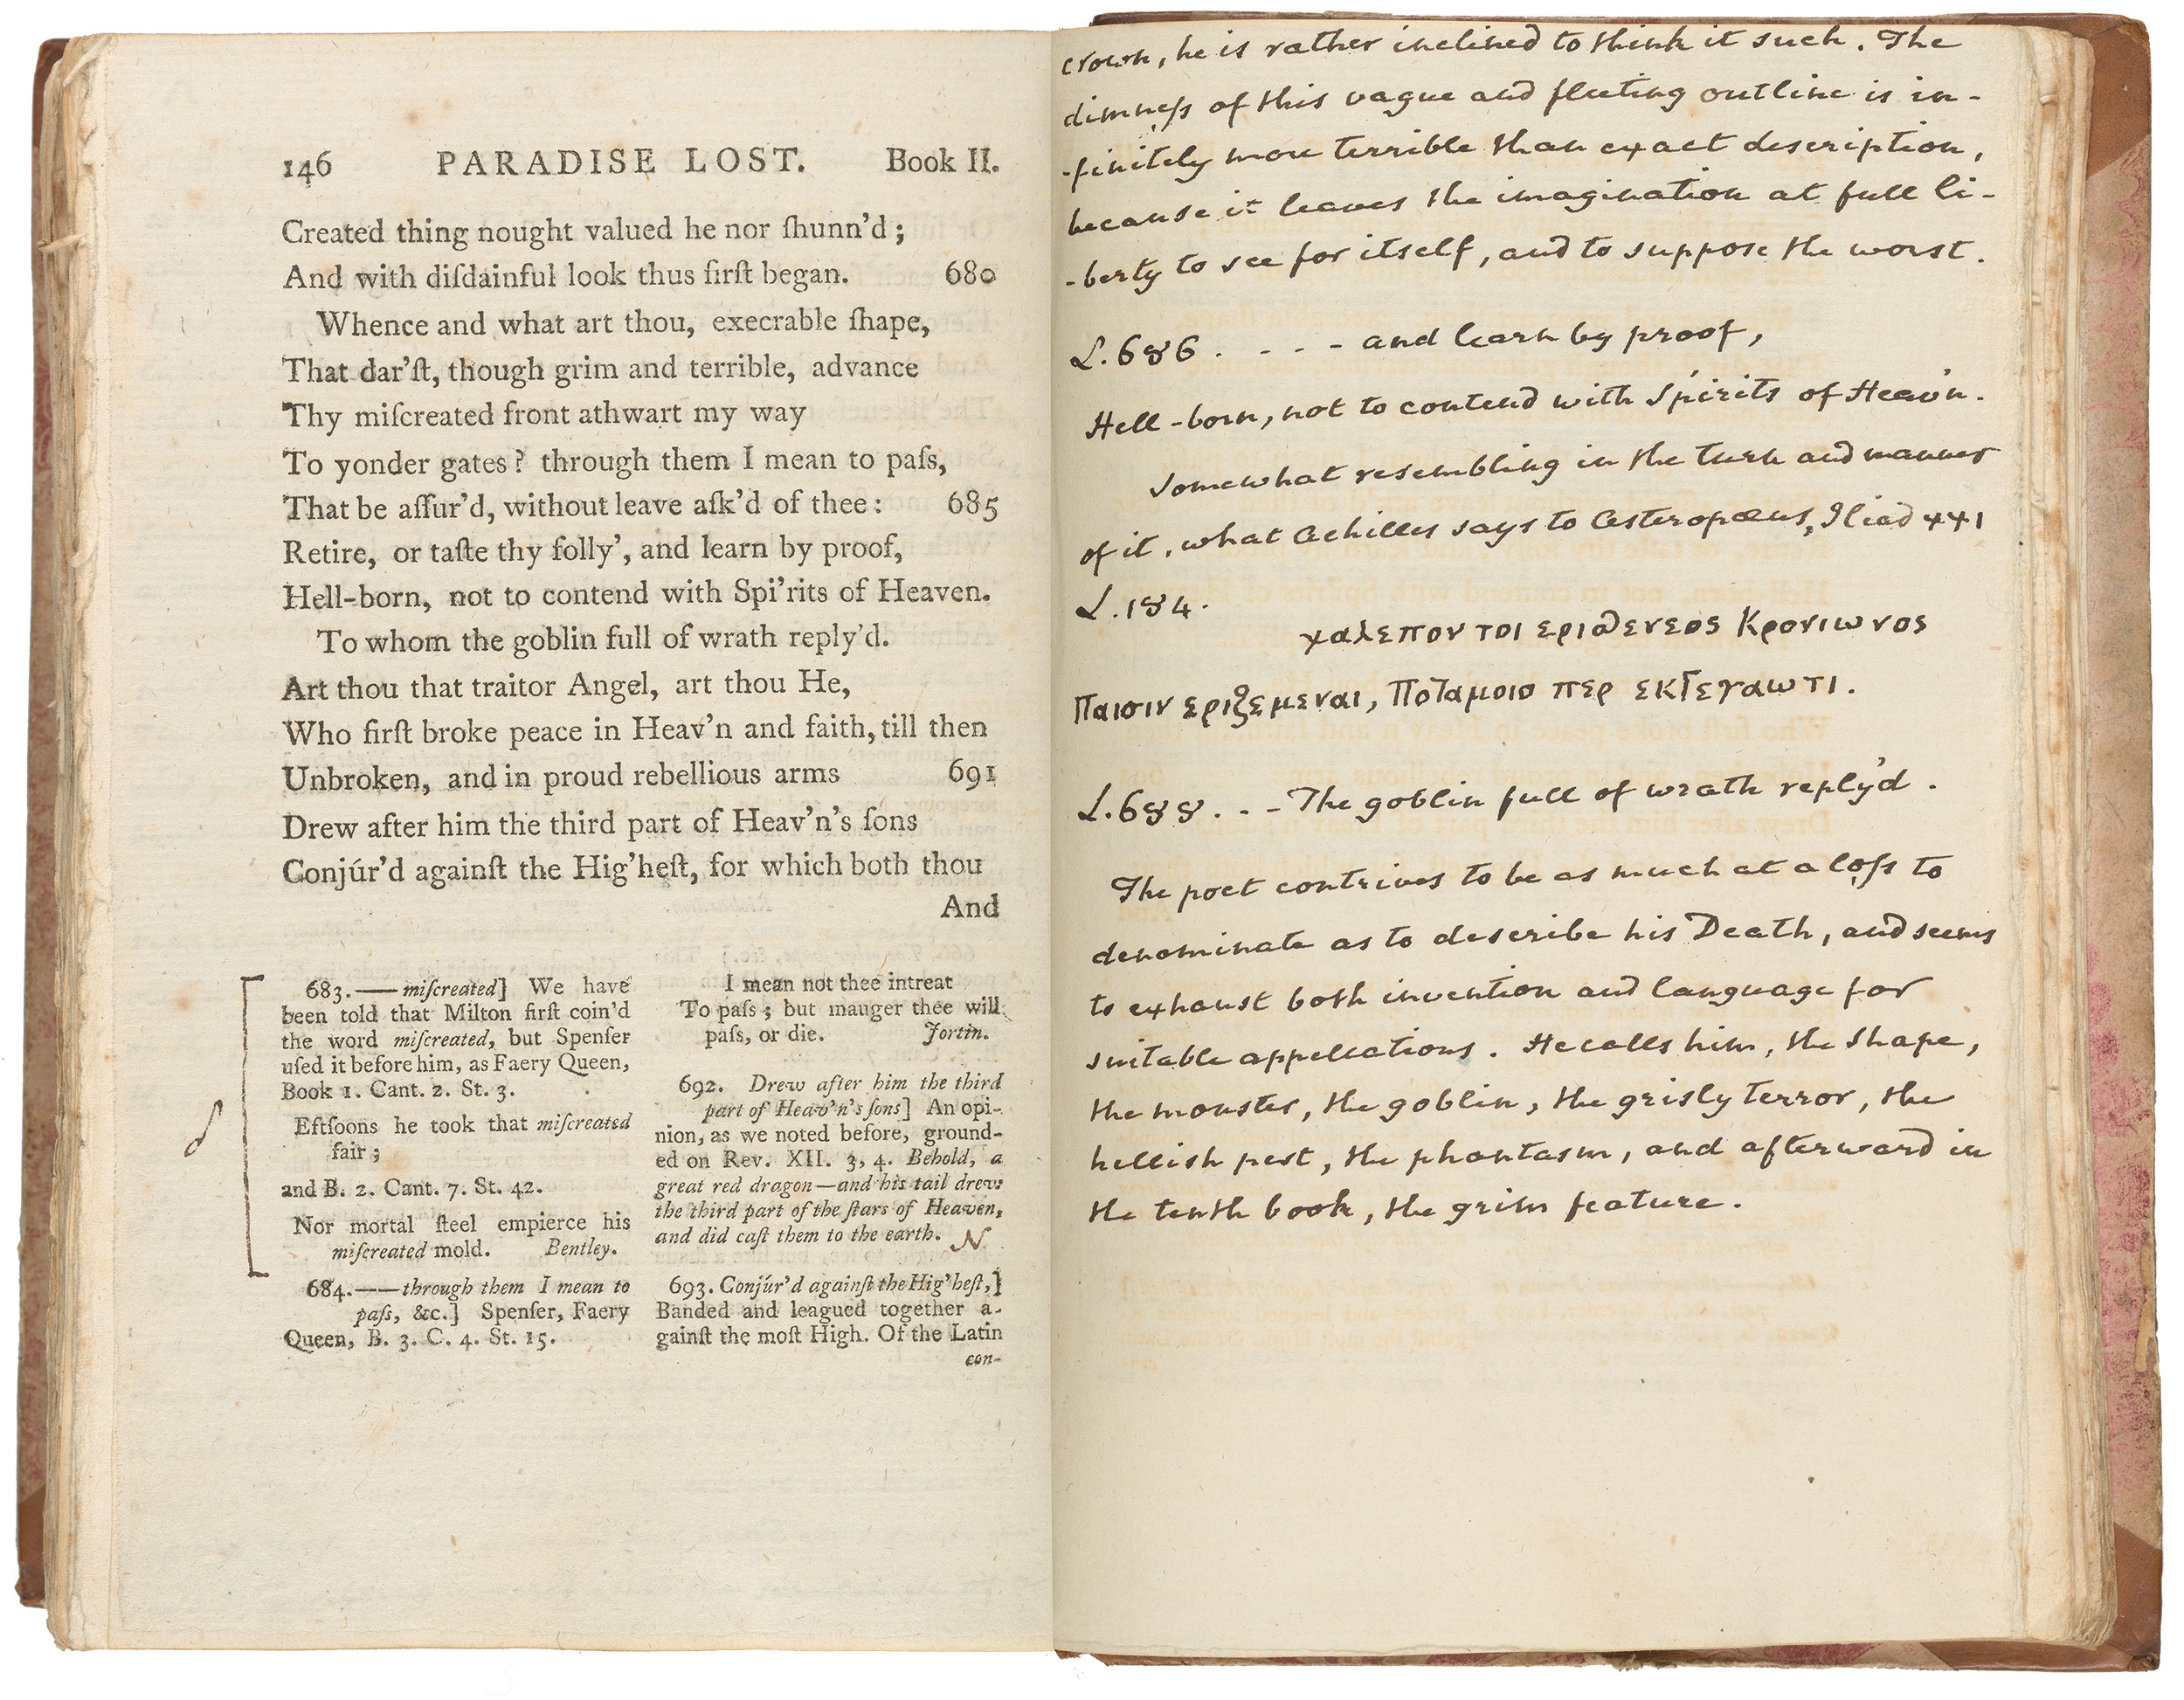 146 PARADISE LOST. Book II.
Created thing nought valued he nor ſhunn'd;
And with diſdainful look thus firſt began. 680
Whence and what art thou, execrable ſhape,
That dar'ſt, though grim and terrible, advance
Thy miſcreated front athwart my way
To yonder gates? through them I mean to paſs,
That be aſſur'd, without leave aſk'd of thee: 685
Retire, or taſte thy folly', and learn by proof,
Hell-born, not to contend with Spi'rits of Heaven.
To whom the goblin full of wrath reply'd.
Art thou that traitor Angel, art thou He,
Who firſt broke peace in Heav'n and faith, till then
Unbroken, and in proud rebellious arms 691
Drew after him the third part of Heav'n's ſons
Conjúr'd againſt the Hig'heſt, for which both thou
And
683.—— miſcreated] We have
been told that Milton firſt coin'd
the word miſcreated, but Spenſer
uſed it before him, as Faery Queen,
Book 1. Cant. 2. St. 3.
Eftſoons he took that miſcreated
fair;
and B. 2. Cant. 7. St. 42.
Nor mortal ſteel empierce his
miſcreated mold. Bentley.
684.——through them I mean to
paſs, &c.] Spenſer, Faery
Queen, B. 3. C. 4. St. 15.
I mean not thee intreat
To paſs; but mauger thee will
paſs, or die. Jortin.
692. Drew after him the third
part of Heav'n's ſons] An opi-
nion, as we noted before, ground-
ed on Rev. XII. 3, 4. Behold, a
great red dragon—and his tail drew
the third part of the ſtars of Heaven,
and did caſt them to the earth. N
693. Conjúr'd againſt the Hig'heſt,]
Banded and leagued together a-
gainſt the moſt High. Of the Latin
con-
crown, he is rather inclined to think it such. The
dimneſs of this vague and fleeting outline is in-
-finitely more terrible than exact description,
because it leaves the imagination at full li-
-berty to see for itself, and to suppose the worst.
L. 686. - - - and learn by proof,
Hell-born, not to contend with Sp'irits of Heav'n.
Somewhat resembling in the turn and manner
of it, what Achilles says to Asteropæus, Iliad xxi
L. 184.
χαλεπον τοι εριςθενεος Κρονιωνος
Παισιν εριζεμεναι, Ποταμοιο περ εκγεγαωτι.
L. 688. - - The goblin full of wrath reply'd.
The poet contrives to be as much at a loſs to
denominate as to describe his Death, and seems
to exhaust both invention and language for
suitable appellations. He calls him, the shape,
the monster, the goblin, the grisly terror, the
hellish pest, the phantasm, and afterward in
the tenth book, the grim feature.